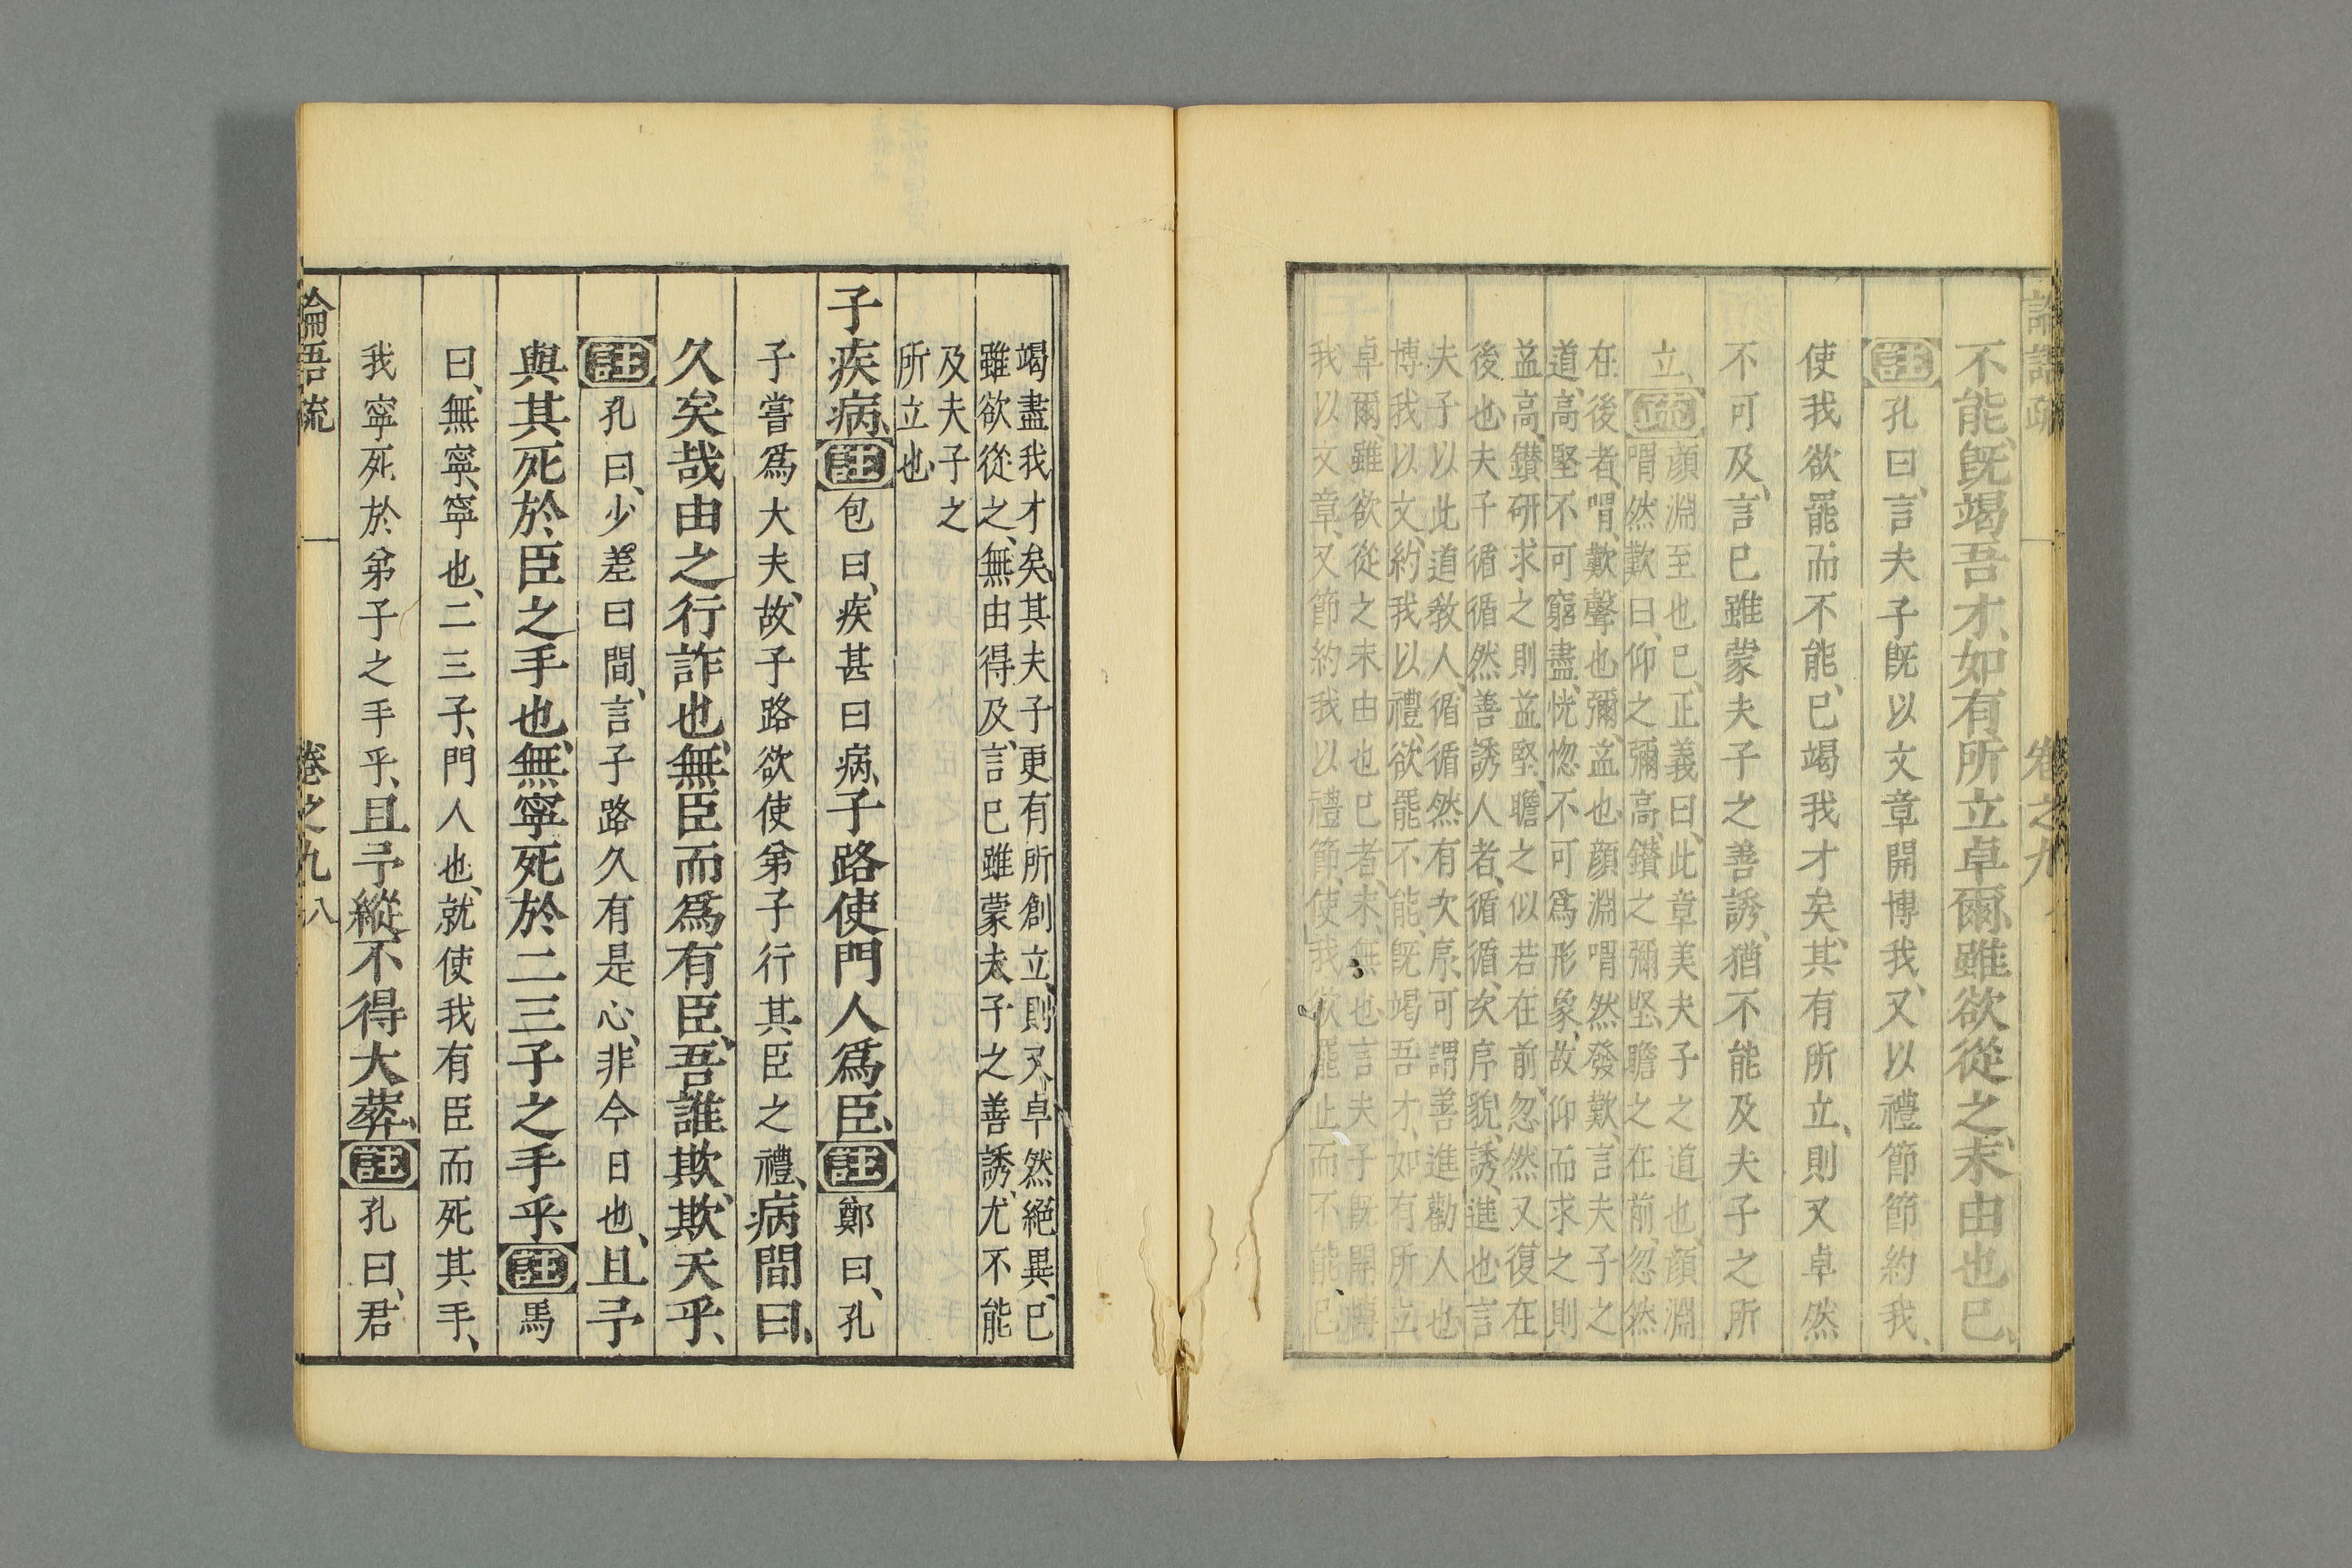 不能、旣竭吾才、如有所立卓爾、雖欲從之、末由也已、
註孔曰、言夫子旣以文章開博我、又以禮節節約我、
使我欲罷而不能、已竭我才矣、其有所立、則又卓然
不可及、言已雖蒙夫子之善誘、猶不能及夫子之所
立、疏顔淵至也已、正義曰、此章美夫子之道也、顔淵
喟然歎曰、仰之彌高、鑚之彌堅、瞻之在前、忽然
在後者、喟、歎聲也、彌、益也、顔淵喟然發歎、言夫子之
道、高堅不可窮盡、恍惚不可爲形象、故仰而求之則
益高、鑚研求之則益堅、瞻之似若在前、忽然又復在
後也、夫子循循然善誘人者、循循、次序貌、誘、進也、言
夫子以此道教人、循循然有次序、可謂善進勸人也
博我以文、約我以禮、欲罷不能、旣竭吾才、如有所立
卓爾、雖欲從之末由也已者、末、無也、言夫子旣開博
我以文章、又節約我以禮節、使我欲罷止而不能、已
竭盡我才矣、其夫子更有所創立、則又卓然絕異、已
雖欲從之、無由得及、言已雖蒙夫子之善誘、尤不能
及夫子之
所立也
子疾病、註包曰、疾甚曰病、子路使門人爲臣、註鄭曰、孔
子嘗爲大夫、故子路欲使弟子行其臣之禮、病間曰、
久矣哉由之行詐也、無臣而爲有臣、吾誰欺、欺天乎、
註孔曰、少差曰間、言子路久有是心、非今日也、且予
與其死於臣之手也、無寧死於二三子之手乎、註馬
曰、無寧、寧也、二三子、門人也、就使我有臣而死其手、
我寧死於弟子之手乎、且予縱不得大葬、註孔曰、君
論語疏 卷之九 八